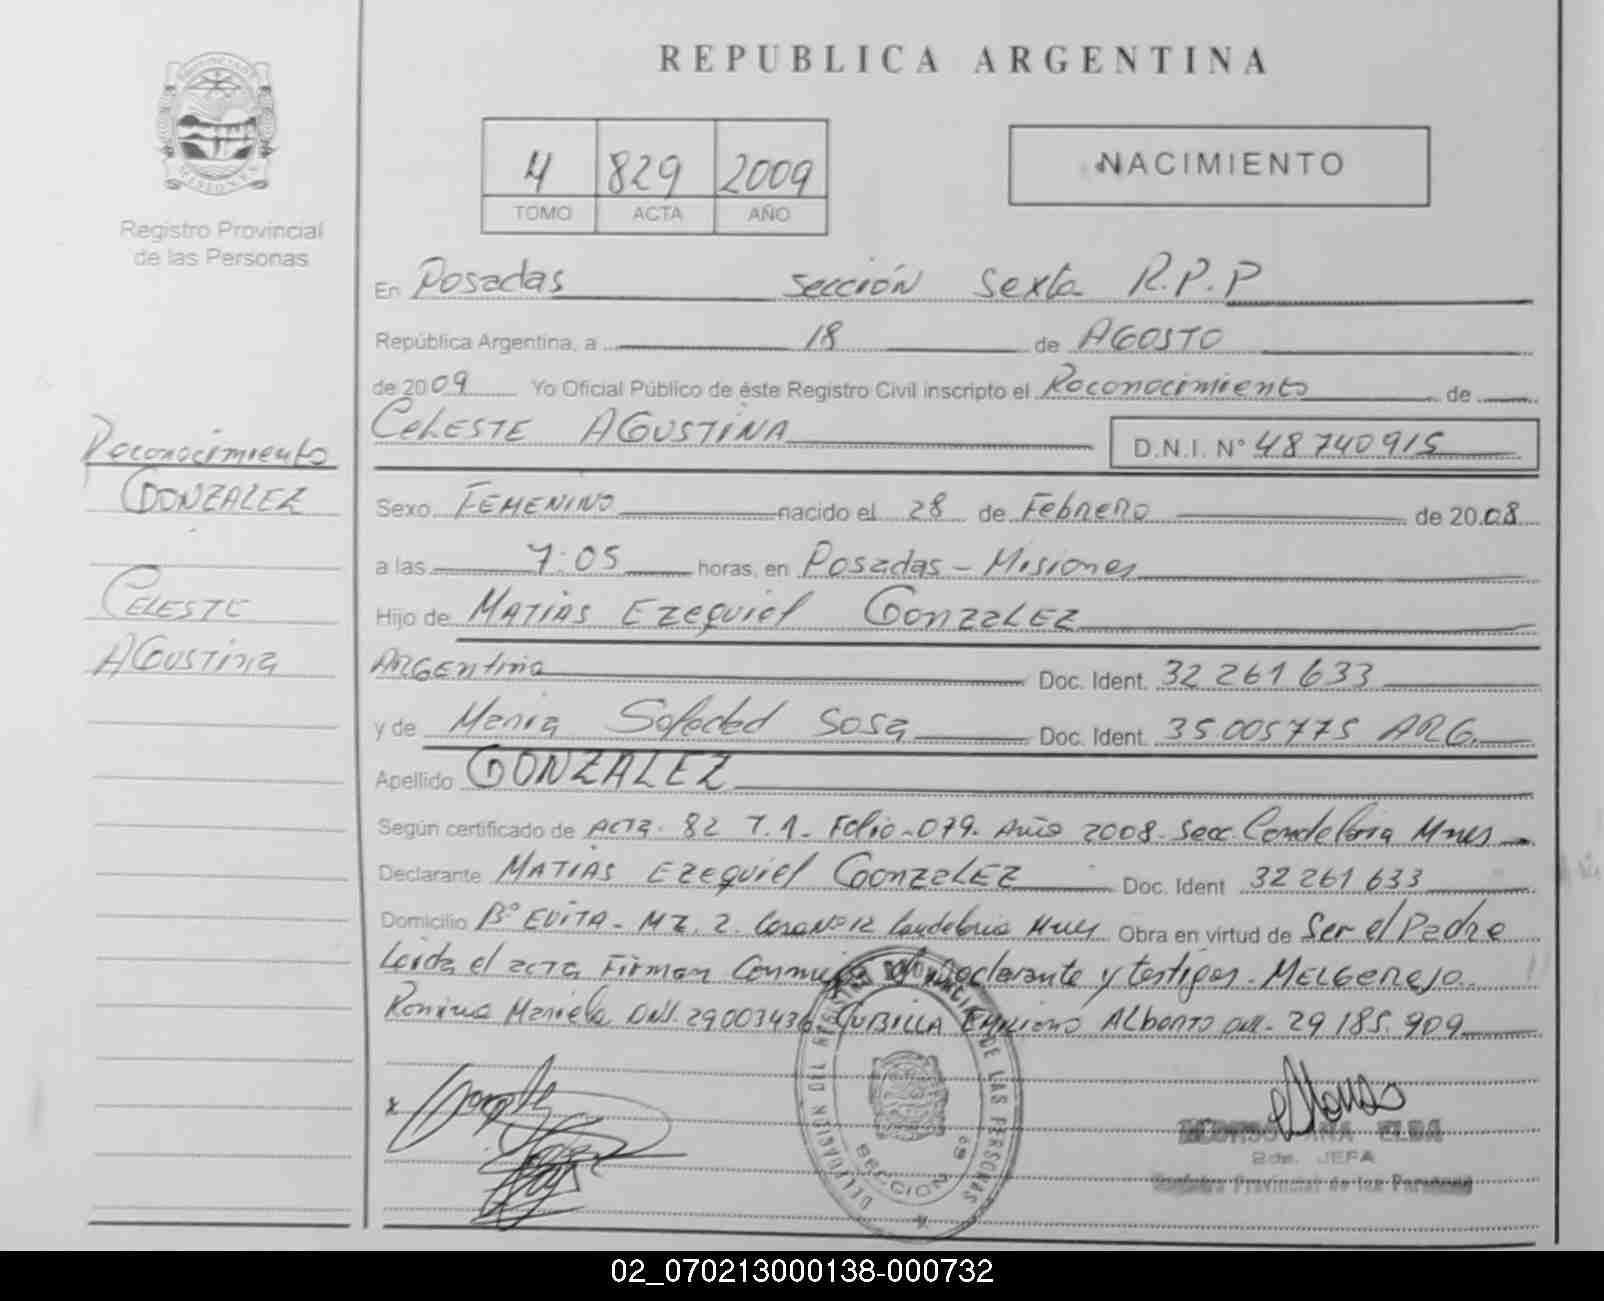 REPUBLICA ARGENTINA
PROVINCIA DE
MISIONES
Registro Provincial
de las Personas
4 829 2009
TOMO ACTA AÑO
NACIMIENTO
En Posadas sección sexta R.P.P
República Argentina, a 18 de AGOSTO
de 2009 Yo Oficial Público de éste Registro Civil inscripto el Reconocimiento de
CELESTE AGUSTINA D.N.I. N° 48740915
Reconocimiento
GONZALEZ
CELESTE
AGUSTINA
Sexo FEMENINO nacido el 28 de Febrero de 2008
a las 7:05 horas, en Posadas - Misiones
Hijo de MATIAS Ezequiel GonzaLEZ
ARGEntina Doc. Ident. 32 261 633
y de Maria Soledad Sosa Doc. Ident. 35005775 ARG.
Apellido GONZALEZ
Según certificado de Acta. 82 T.1. Folio-079. Año 2008. Secc. Candelaria Mnes
Declarante MATIAS Ezequiel GonzaLEZ Doc. Ident 32 261 633
Domicilio B° EVITA - MZ. 2. Casa N° 12 Candelaria Mnes Obra en virtud de Ser el Padre
Leida el acta Firman Conmigo Declarante y testigos. MELGAREJO
Romina Mariela DNI. 29003436 CUBILLA EMILIANO ALBERTO DNI. 29 185. 909
DELEGACION DEL REGISTRO PROVINCIAL DE LAS PERSONAS
SECCION 6ª
ANA ELBA
2da. JEFA
Registro Provincial de las Personas
02_070213000138-000732